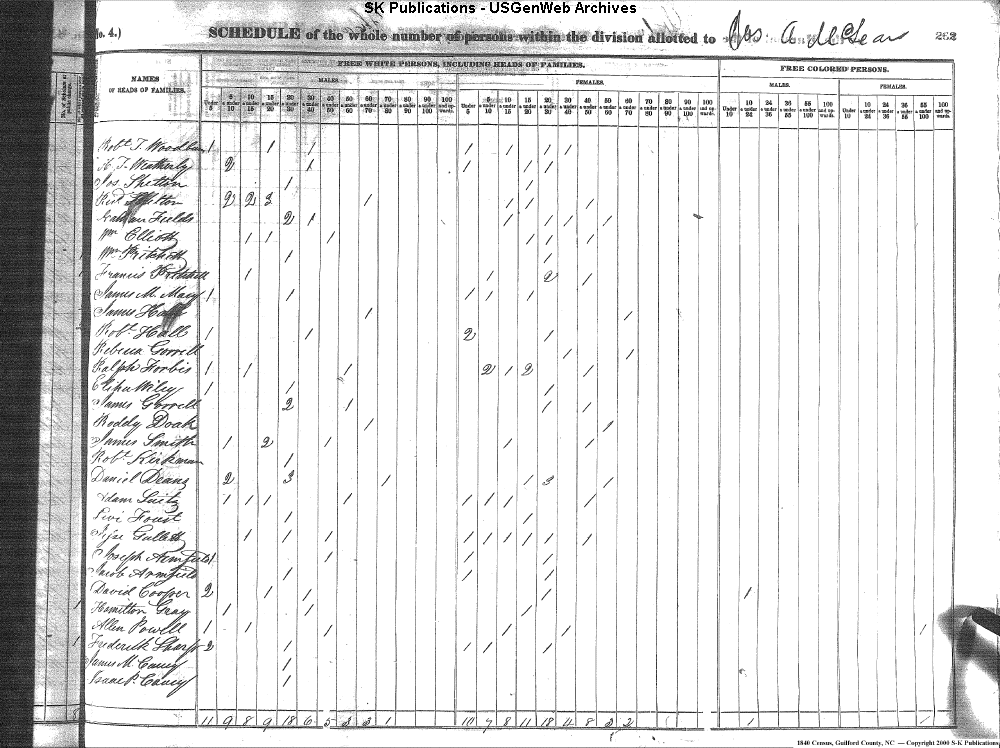 SK Publications - USGenWeb Archives
(No. 4.) SCHEDULE of the whole number of persons within the division allotted to Jas. A. McLean 262
FREE WHITE PERSONS, INCLUDING HEADS OF FAMILIES. FREE COLORED PERSONS.
NAMES OF HEADS OF FAMILIES.
MALES. FEMALES. MALES. FEMALES.
Under 5 5 & under 10 10 & under 15 15 & under 20 20 & under 30 30 & under 40 40 & under 50 50 & under 60 60 & under 70 70 & under 80 80 & under 90 90 & under 100 100 and upwards.
Under 5 5 & under 10 10 & under 15 15 & under 20 20 & under 30 30 & under 40 40 & under 50 50 & under 60 60 & under 70 70 & under 80 80 & under 90 90 & under 100 100 and upwards.
Under 10 10 & under 24 24 & under 36 36 & under 55 55 & under 100 100 and upwards.
Under 10 10 & under 24 24 & under 36 36 & under 55 55 & under 100 100 and upwards.
Robt. T. Woodburn 1 1 1 1 1 1 1
T. Weatherly 2 1 1 1 1
Jos. Shelton 1 1
Shelton 2 2 3 1 1 1 1
Fields 2 1 1 1 1 1 1
Wm Elliott 1 1 1 1 1 1
Wm Pritchett 1 1
Francis Pritchett 1 1 2 1
James M. Macy 1 1 1 1 1
James Hall 1 1
Robt. Hall 1 1 2 1
Rebecca Gorrell 1 1
Ralph Forbis 1 1 1 2 1 2 1
Wiley 1 1 1
James Gorrell 2 1 1 1
Roddy Doak 1 1
James Smith 1 2 1 1 1
Robt. Kirkman 1
Daniel Deans 2 3 1 1 3 1
Adam 1 1 1 1 1 1 1 1
Levi Foust 1 1
1 1 1 1 1 1 1 1 1
Joseph Armfield 1 1 1 1
Jacob Armfield 1 1 1
David Cooper 2 1 1 1 1
Hamilton Gray 1 1 1
Allen Powell 1 1 1 1 1 1
Frederick Sharp 2 1 1 1 1
James M. Causey 1
Isaac P. Causey 1
11 9 8 9 18 6 5 3 3 1 10 7 8 11 18 4 8 2 2 1 1
1840 Census, Guilford County, NC — Copyright 2000 S-K Publications